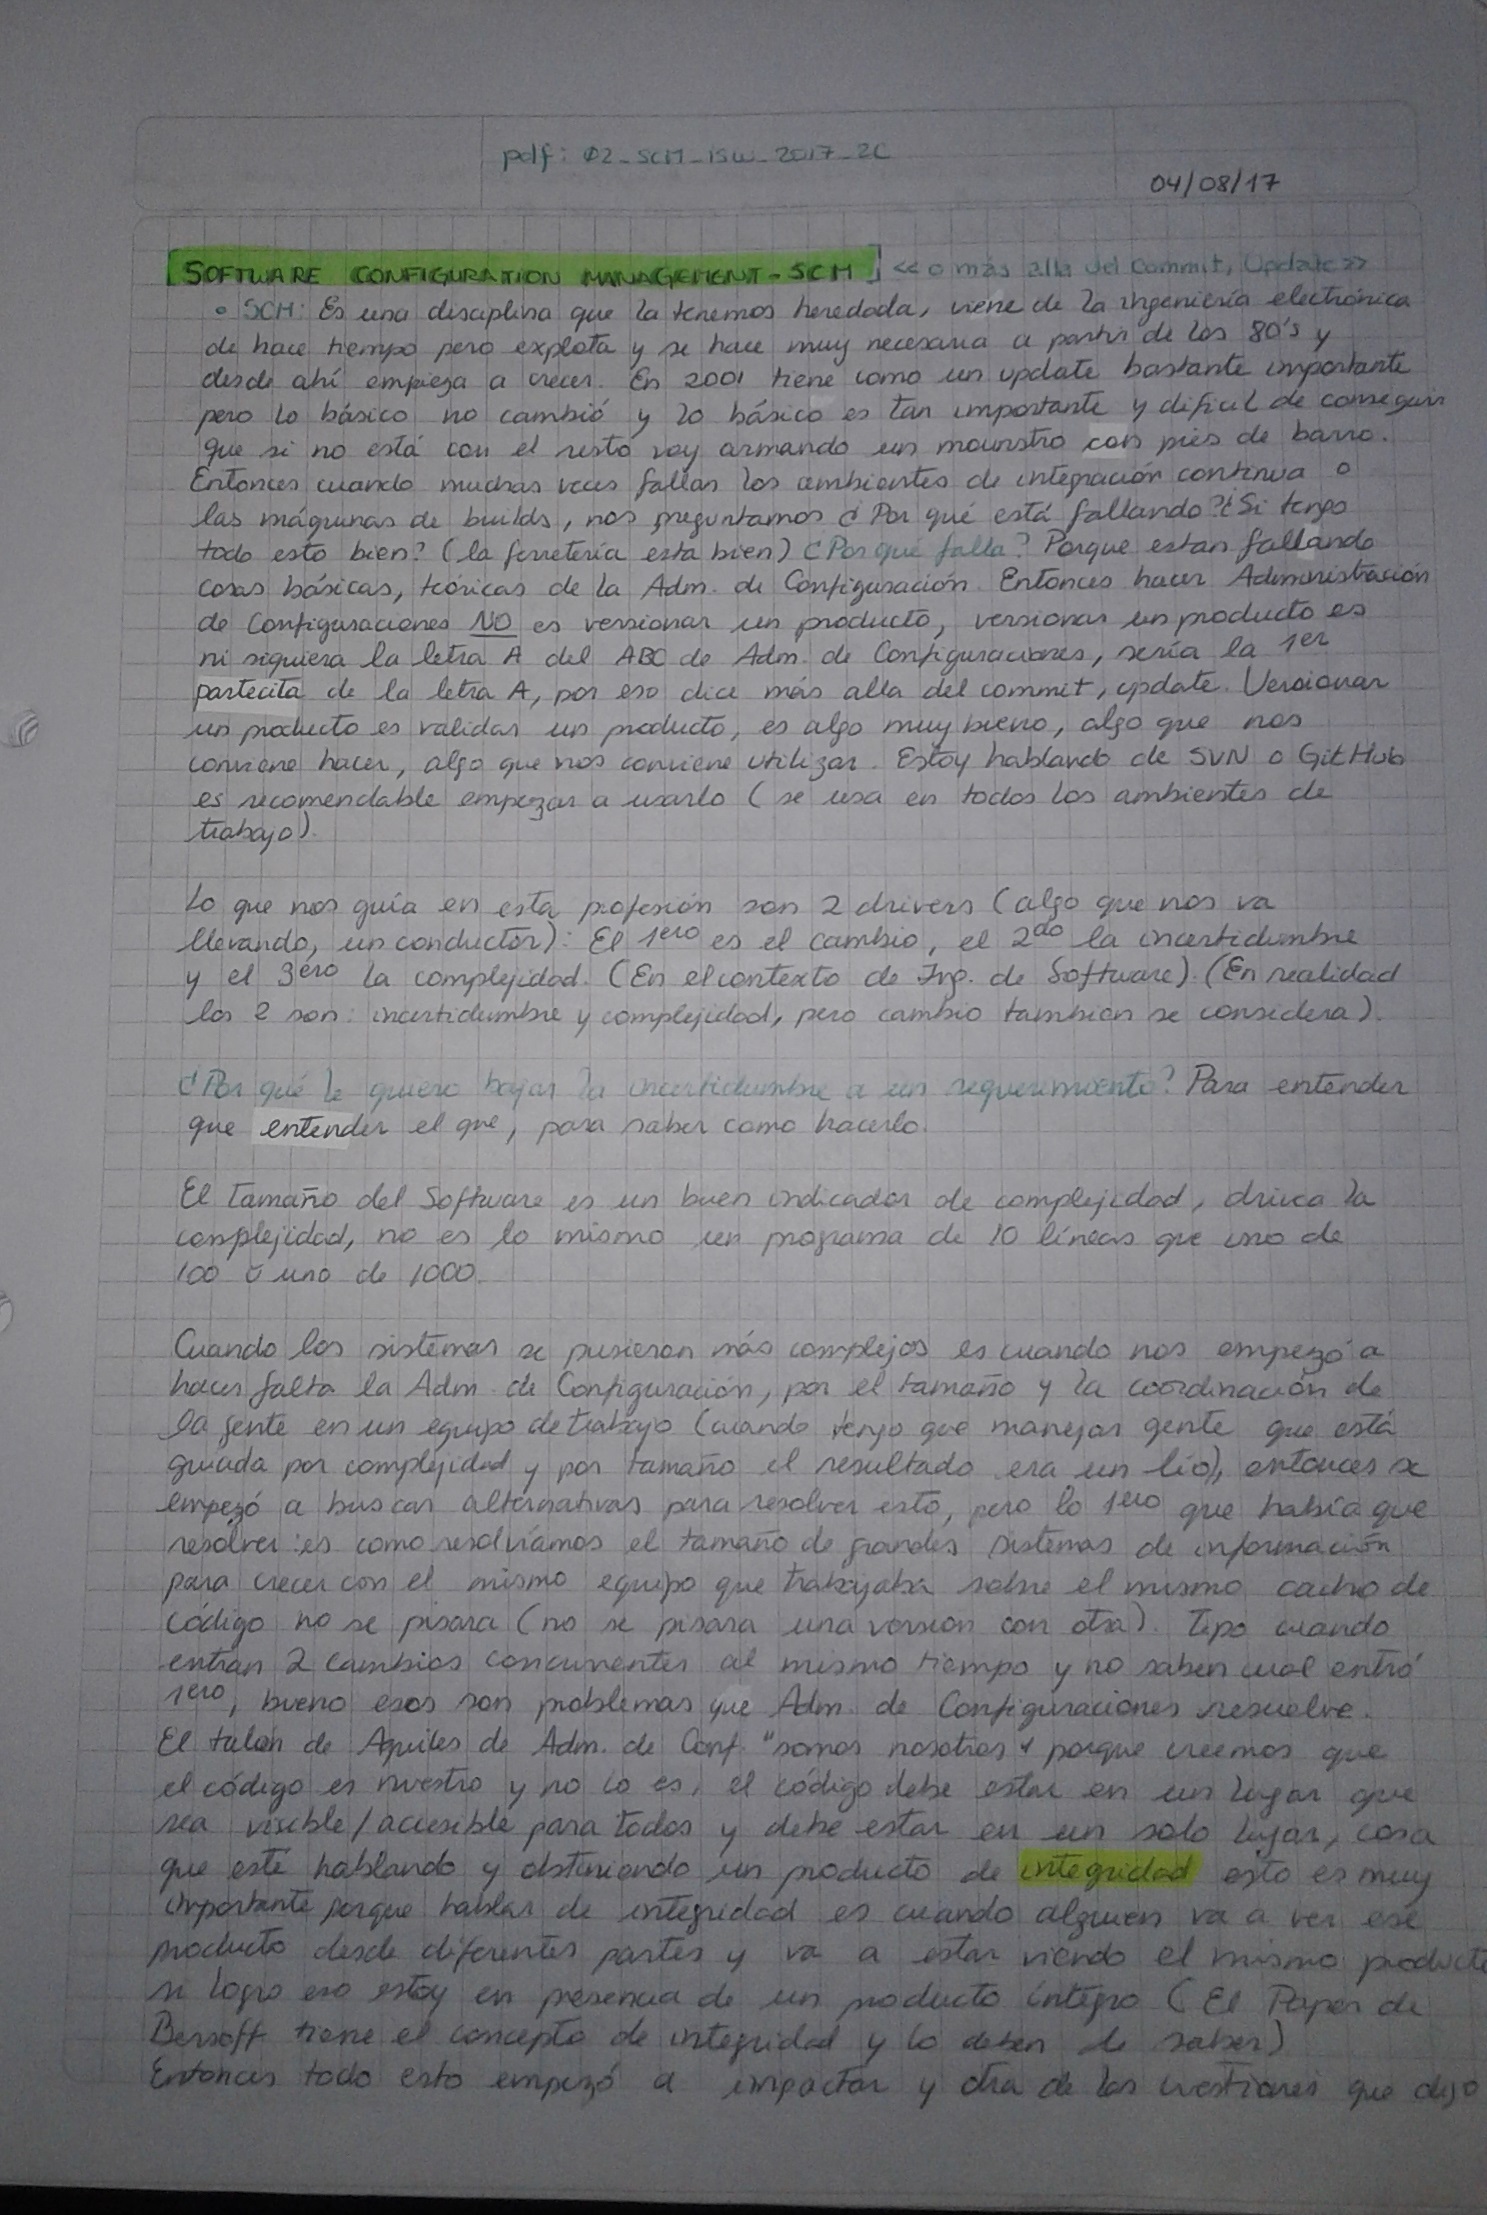 pdf: 02_SCM_ISW_2017_2C
04/08/17
SOFTWARE CONFIGURATION MANAGEMENT - SCM << o más alla del Commit, Update>>
• SCM: Es una disciplina que la tenemos heredada, viene de la ingeniería electrónica
de hace tiempo pero explota y se hace muy necesaria a partir de los 80's y
desde ahí empieza a crecer. En 2001 tiene como un update bastante importante
pero lo básico no cambió y lo básico es tan importante y dificil de conseguir
que si no está con el resto voy armando un mounstro con pies de barro.
Entonces cuando muchas veces fallan los ambientes de integración continua o
las máquinas de builds, nos preguntamos ¿Por qué está fallando?¿Si tengo
todo esto bien? (la ferretería esta bien) ¿Por qué falla? Porque estan fallando
cosas básicas, teóricas de la Adm. de Configuración. Entonces hacer Administración
de Configuraciones NO es versionar un producto, versionar un producto es
ni siquiera la letra A del ABC de Adm. de Configuraciones, sería la 1er
partecita de la letra A, por eso dice más alla del commit, update. Versionar
un producto es validar un producto, es algo muy bueno, algo que nos
conviene hacer, algo que nos conviene utilizar. Estoy hablando de SVN o GitHub
es recomendable empezar a usarlo (se usa en todos los ambientes de
trabajo).
Lo que nos guía en esta profesión son 2 drivers (algo que nos va
llevando, un conductor): El 1ero es el cambio, el 2do la incertidumbre
y el 3ero la complejidad. (En el contexto de Ing. de Software). (En realidad
los 2 son: incertidumbre y complejidad, pero cambio tambien se considera).
¿Por qué le quiero bajar la incertidumbre a un requerimiento? Para entender
que entender el que, para saber como hacerlo.
El Tamaño del Software es un buen indicador de complejidad, driva la
complejidad, no es lo mismo un programa de 10 líneas que uno de
100 o uno de 1000.
Cuando los sistemas se pusieron más complejos es cuando nos empezó a
hacer falta la Adm. de Configuración, por el tamaño y la coordinación de
la gente en un equipo de trabajo (cuando tengo que manejar gente que está
guiada por complejidad y por tamaño el resultado era un lío), entonces se
empezó a buscar alternativas para resolver esto, pero lo 1ero que había que
resolver: es como resolvíamos el tamaño de grandes sistemas de información
para crecer con el mismo equipo que trabajaba sobre el mismo cacho de
código no se pisara (no se pisara una version con otra). Tipo cuando
entran 2 cambios concurrentes al mismo tiempo y no saben cual entró
1ero, bueno esos son problemas que Adm. de Configuraciones resuelve.
El talón de Aquiles de Adm. de Conf. "somos nosotros" porque creemos que
el código es nuestro y no lo es, el código debe estar en un lugar que
sea visible/accesible para todos y debe estar en un solo lugar, cosa
que esté hablando y obteniendo un producto de integridad esto es muy
importante porque hablar de integridad es cuando alguien va a ver ese
producto desde diferentes partes y va a estar viendo el mismo producto
si logro eso estoy en presencia de un producto íntegro (El Paper de
Bersoff tiene el concepto de integridad y lo deben de saber)
Entonces todo esto empezó a impactar y otra de las cuestiones que dejó